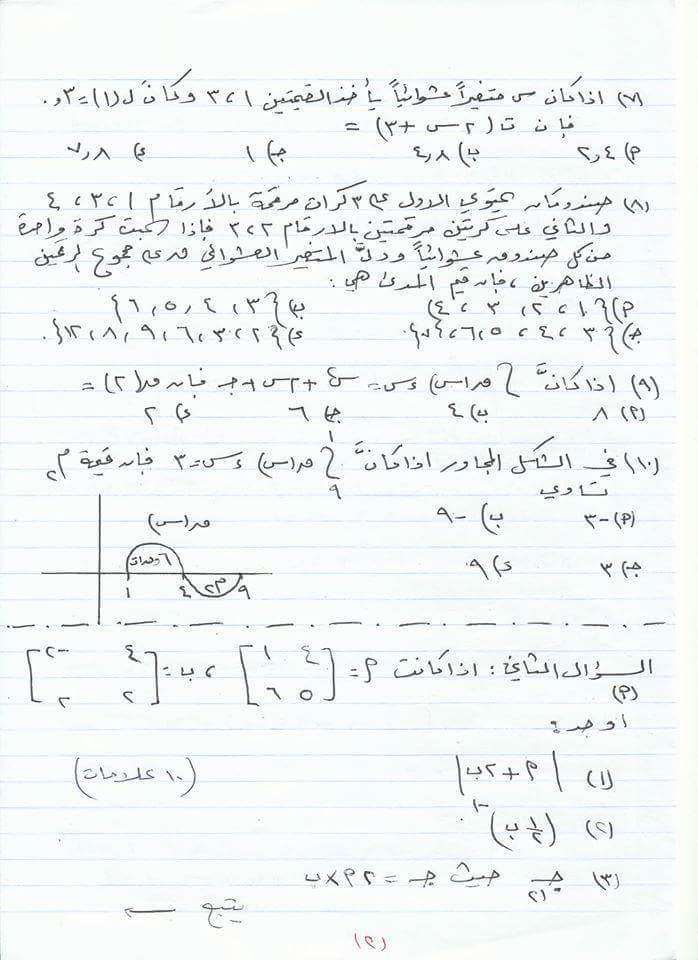 (٧) اذا كان س متغيراً عشوائياً يأخذ القيمتين ١ ، ٣ وكان ل(١) = ٣ و.
فإن ت (٢س + ٣) =
م) ٢,٤ ب) ٤,٨ جـ) ١ ء) ٧,٨
(٨) صندوقان يحتوي الاول على ٣ كرات مرقمة بالأرقام ١ ، ٣ ، ٤
والثاني على كرتين مرقمتين بالارقام ٢ ، ٣ فإذا سحبت كرة واحدة
من كل صندوق عشوائياً ودلَّ المتغير العشوائي ق على مجموع الرقمين
الظاهرين ، فإن قيم المدى هي :
م) {١ ، ٢ ، ٣ ، ٤} ب) {٣ ، ٤ ، ٥ ، ٦}
جـ) {٣ ، ٤ ، ٥ ، ٦ ، ٧}. ء) {٢ ، ٣ ، ٦ ، ٩ ، ٨ ، ١٢}.
(٩) اذا كانَّ ∫ ق(س) ءس = س٤ + ٢س + جـ فإن ق(٢) =
(م) ٨ ب) ٤ جـ) ٦ ء) ٢
(١٠) في الشكل المجاور اذا كانَّ ∫ ق(س) ءس = ٣ فإن قيمة م٢
١
٩
تساوي
(م) -٣ ب) -٩
جـ) ٣ ء) ٩
ق(س)
٦ وحدات
م٢
١ ٤ ٩
السؤال الثاني : اذا كانت م = [٤ ١ ، ب = [٤ -٢
٥ ٦] ٢ ٢]
(م)
اوجد :
(١) |م + ٢ب|
(١٠ علامات)
(٢) (١/٢ ب)-١
(٣) جـ٢١ حيث جـ = ٢م × ب
يتبع ←
(٢)